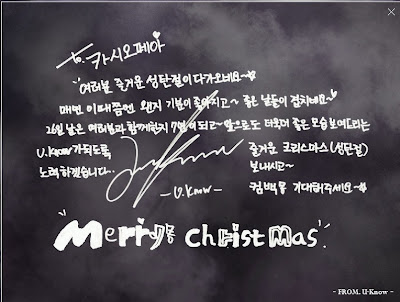 to. 카시오페아
여러분 즐거운 성탄절이 다가오네요~♥
매번 이때쯤엔 왠지 기분이 좋아지고~ 좋은 일들이 겹치네요~♥
26일 날은 여러분과 함께한지 7년이 되고~ 앞으로도 더욱더 좋은 모습 보여드리는
U.Know가 되도록
노력하겠습니다..
즐거운 크리스마스 (성탄절)
보내시고~
컴백을 기대해주세요~♥
-U.Know-
Merry christmas
- FROM. U-Know -